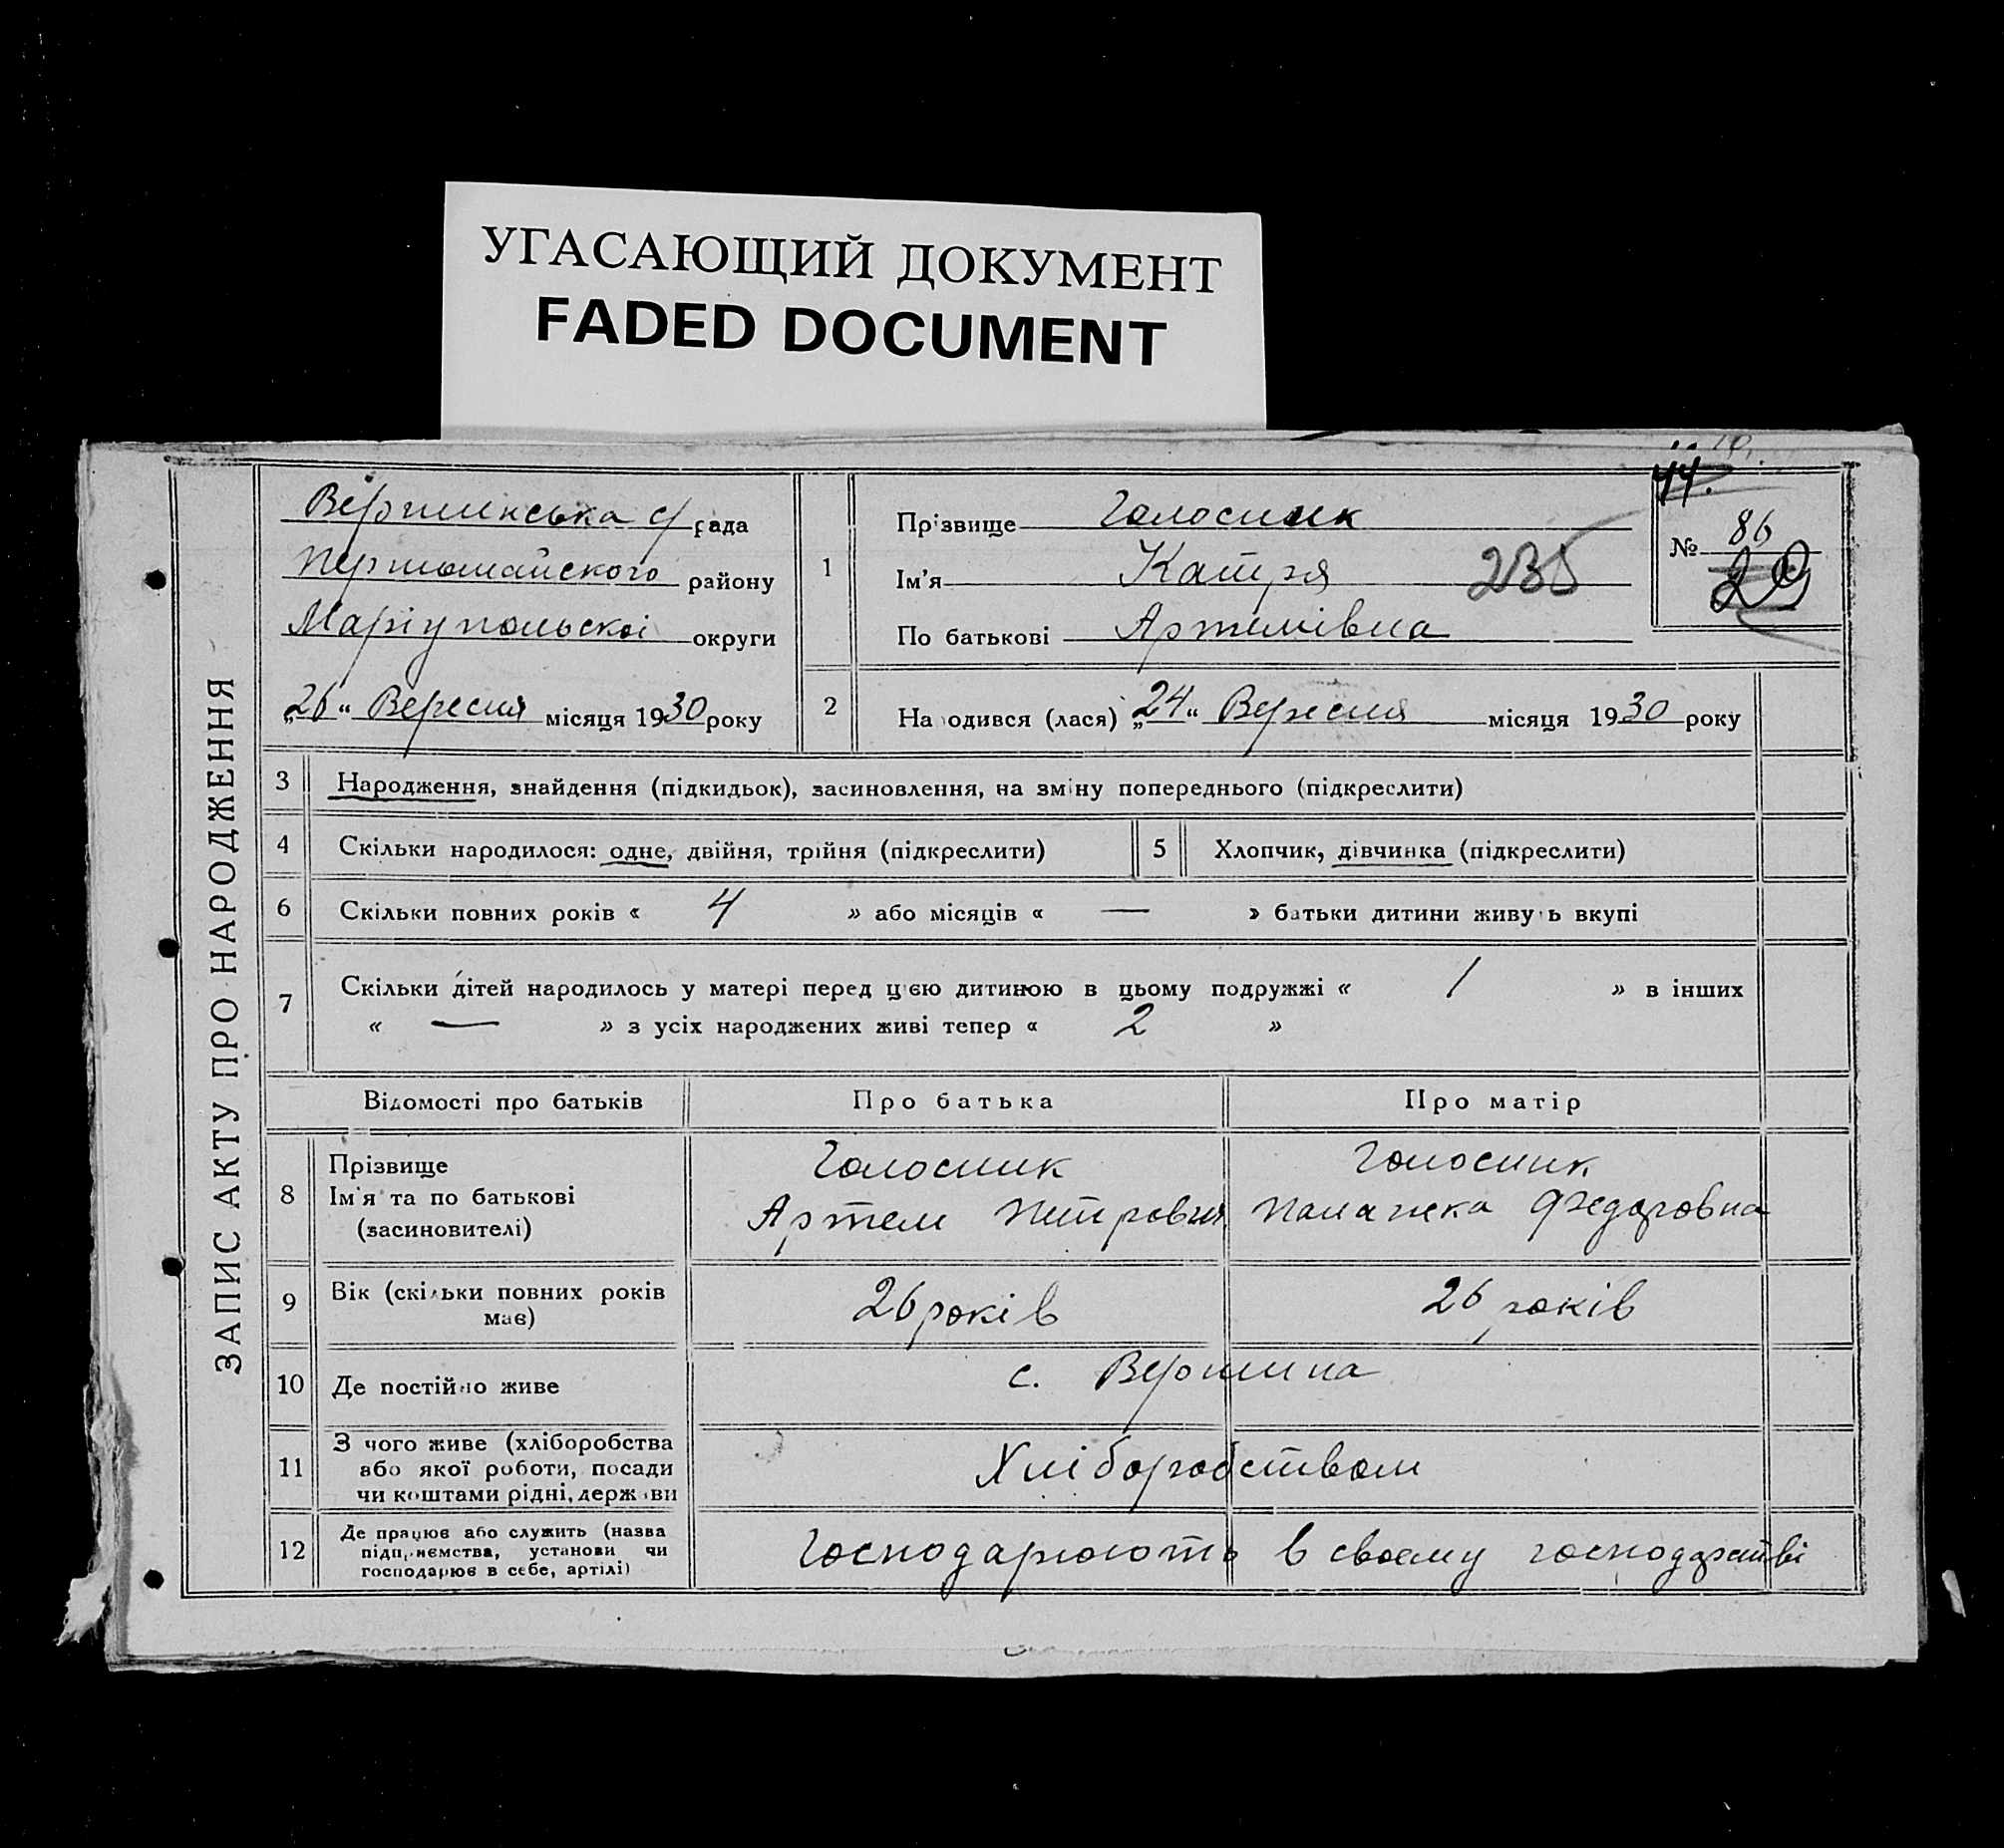 УГАСАЮЩИЙ ДОКУМЕНТ
FADED DOCUMENT
ЗАПИС АКТУ ПРО НАРОДЖЕННЯ
Вершинська с/рада
Першомайского району
Маріупольскоі округи
„26“ Вересня місяця 1930 року
1
Прізвище Голосник
Ім’я Катря
235
По батькові Артемівна
44.
№ 86
20
2
Народився (лася) „24“ Вересня місяця 1930 року
3 Народження, знайдення (підкидьок), засиновлення, на зміну попереднього (підкреслити)
4 Скільки народилося: одне, двійня, трійня (підкреслити)
5 Хлопчик, дівчинка (підкреслити)
6 Скільки повних років « 4 » або місяців « — » батьки дитини живуть вкупі
7 Скільки дітей народилось у матері перед цією дитиною в цьому подружжі « 1 » в інших
« — » з усіх народжених живі тепер « 2 »
Відомості про батьків Про батька Про матір
8 Прізвище Голосник Голосник
Ім’я та по батькові Артем Петрович Палажка Федоровна
(засиновителі)
9 Вік (скільки повних років має) 26 років 26 років
10 Де постійно живе с. Вершина
11 З чого живе (хліборобства
або якої роботи, посади
чи коштами рідні, держави
Хліборобством
12 Де працює або служить (назва
підприємства, установи чи
господарює в себе, артілі)
Господарюють в своему господарстві